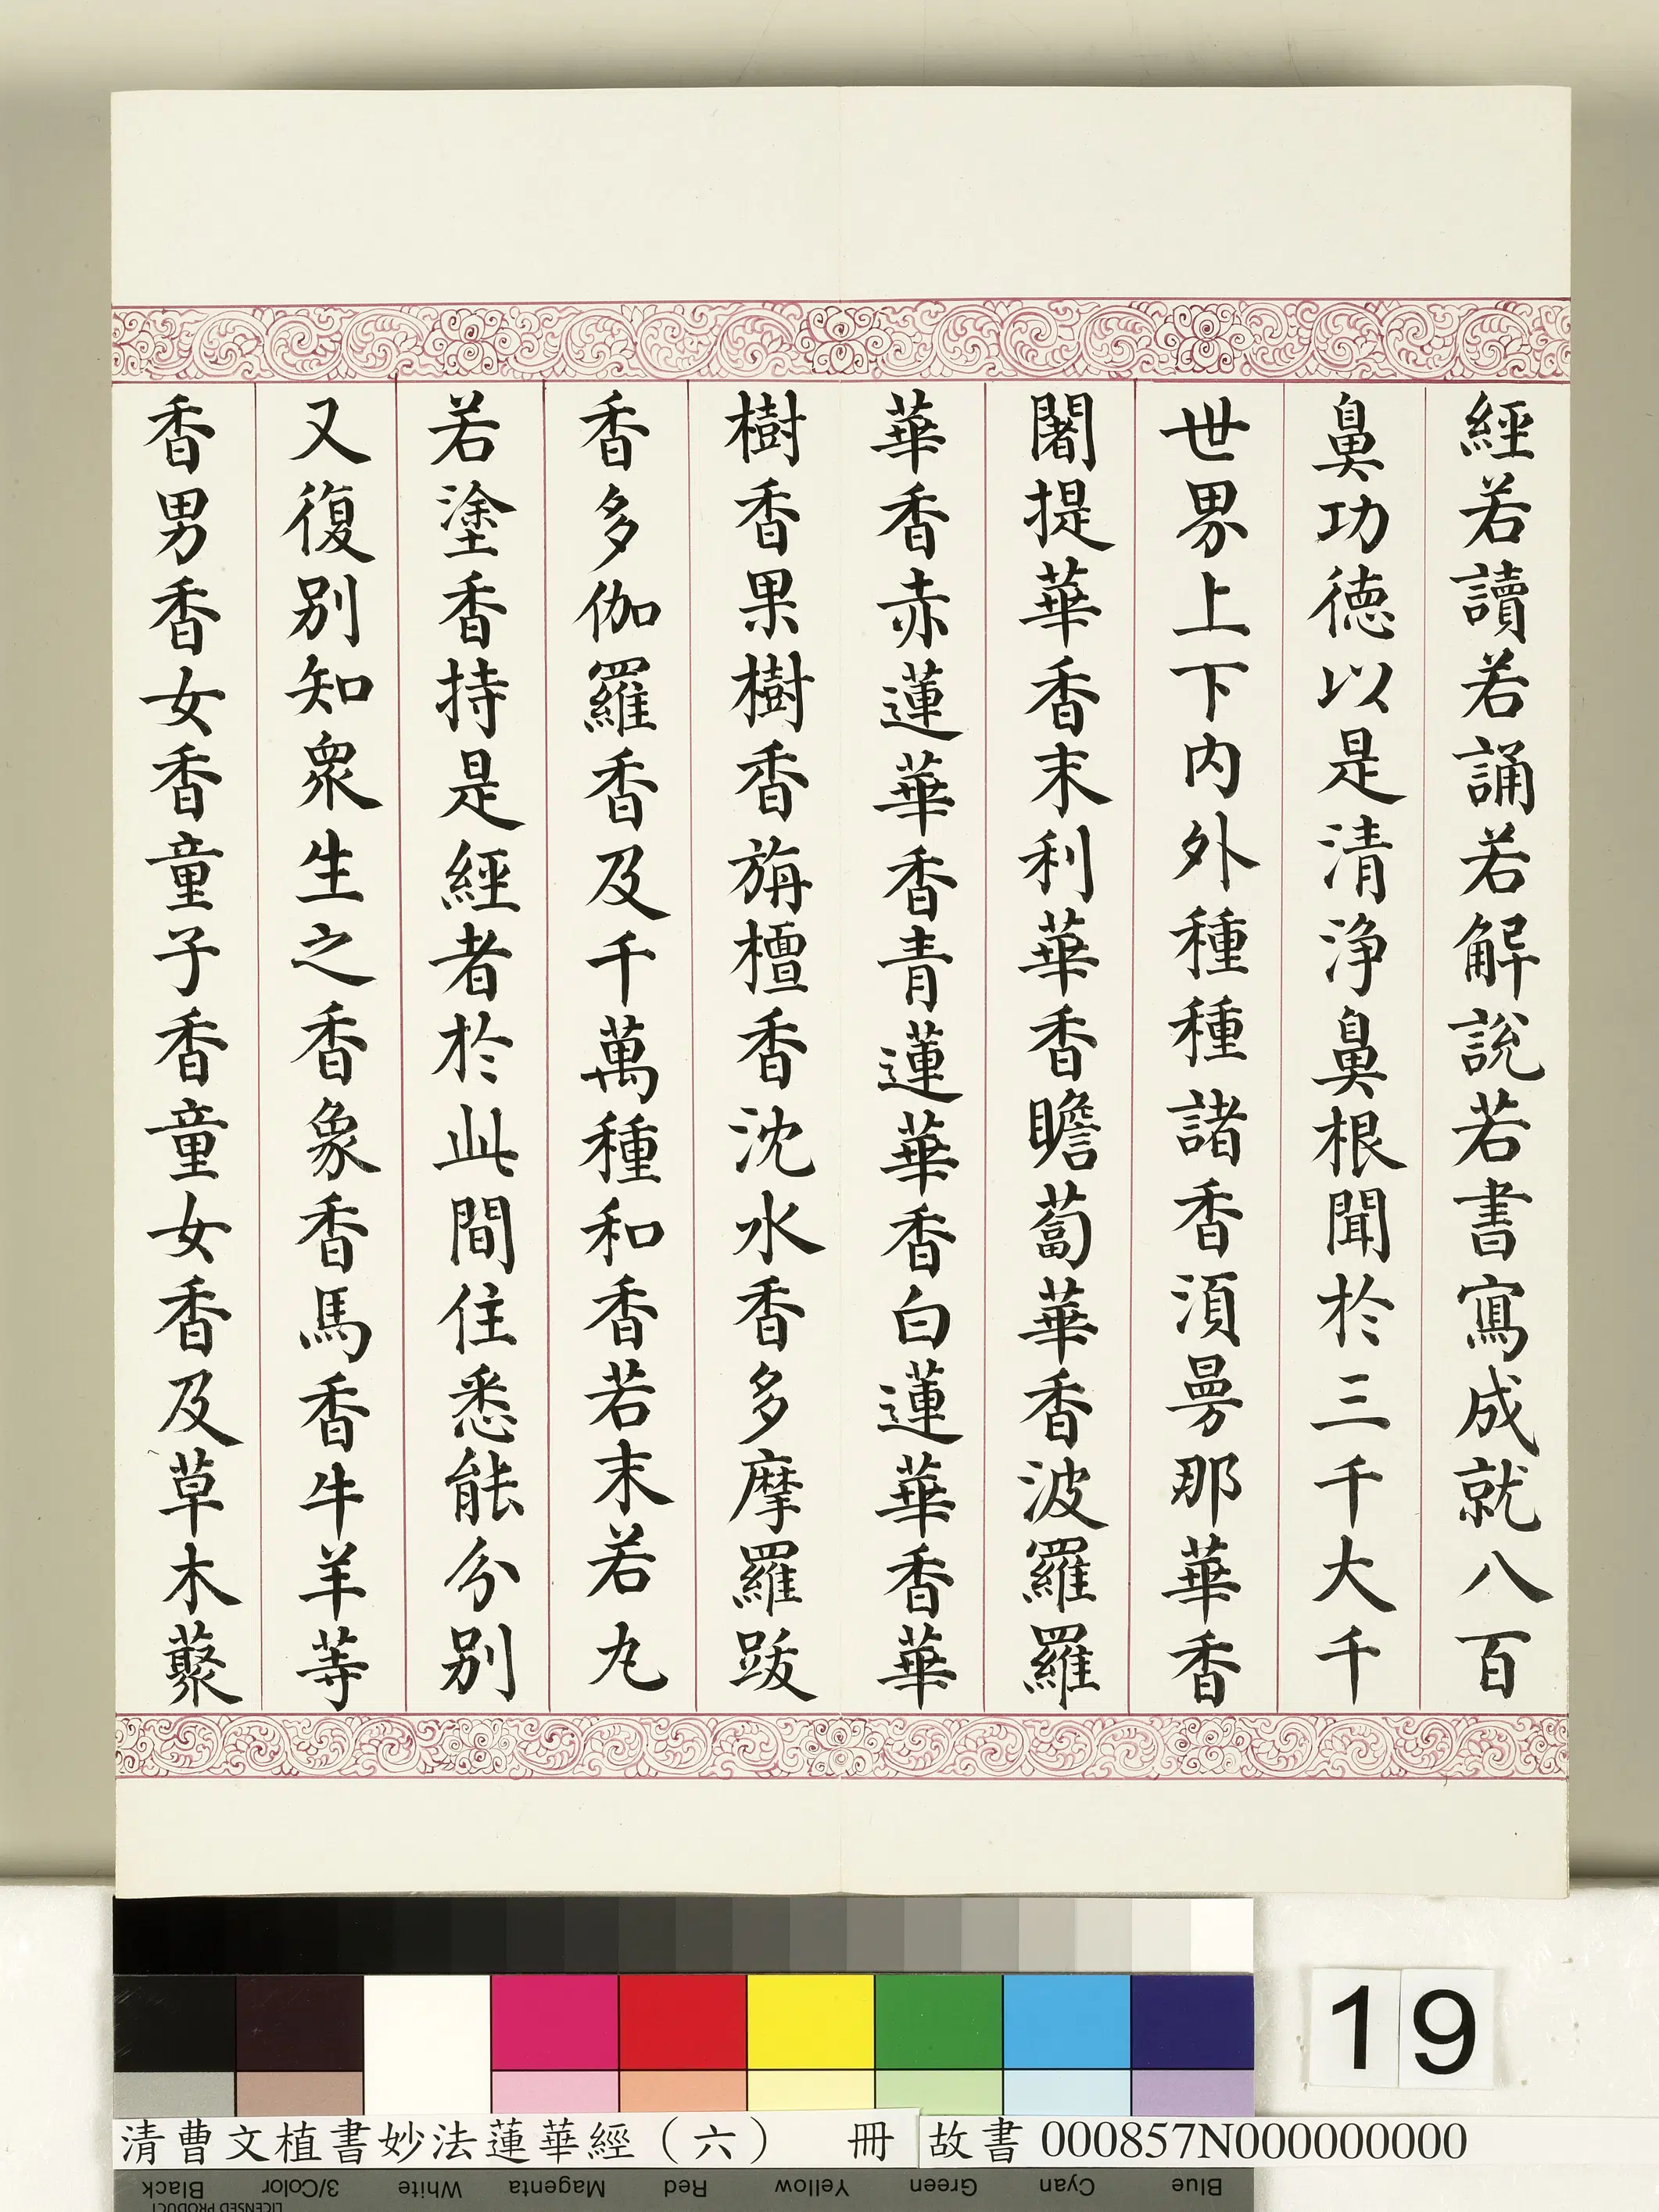 經若讀若誦若解說若書寫成就八百
鼻功德以是清淨鼻根聞於三千大千
世界上下内外種種諸香須曼那華香
闍提華香末利華香瞻蔔華香波羅羅
華香赤蓮華香青蓮華香白蓮華香華
樹香果樹香旃檀香沈水香多摩羅跋
香多伽羅香及千萬種和香若末若丸
若塗香持是經者於此間住悉能分別
又復別知衆生之香象香馬香牛羊等
香男香女香童子香童女香及草木藂
19
清曹文植書妙法蓮華經（六） 冊 故書 000857N000000000
Black 3/Color White Magenta Red Yellow Green Cyan Blue
LICENSED PRODUCT